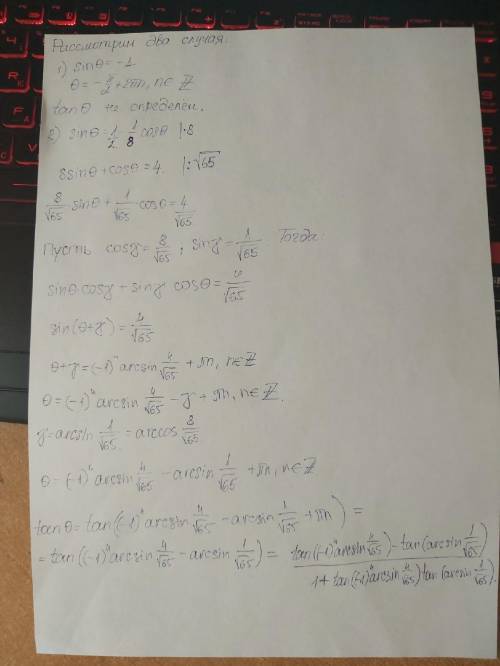 Рассмотрим два случая:
1) sinθ = -1
θ = -π/2 + 2πn, n∈ℤ
tanθ не определён.
2) sinθ = 1/2 - 1/8 cosθ |·8
8sinθ + cosθ = 4. |:√65
8/√65 sinθ + 1/√65 cosθ = 4/√65
Пусть cosγ = 8/√65 ; sinγ = 1/√65. Тогда:
sinθ cosγ + sinγ cosθ = 4/√65
sin(θ+γ) = 4/√65
θ+γ = (-1)ⁿ arcsin 4/√65 + πn, n∈ℤ
θ = (-1)ⁿ arcsin 4/√65 - γ + πn, n∈ℤ.
γ = arcsin 1/√65 = arccos 8/√65
θ = (-1)ⁿ arcsin 4/√65 - arcsin 1/√65 + πn, n∈ℤ
tanθ = tan((-1)ⁿ arcsin 4/√65 - arcsin 1/√65 + πn) =
= tan((-1)ⁿ arcsin 4/√65 - arcsin 1/√65) = tan((-1)ⁿ arcsin 4/√65) - tan(arcsin 1/√65)
1 + tan((-1)ⁿ arcsin 4/√65) tan(arcsin 1/√65).